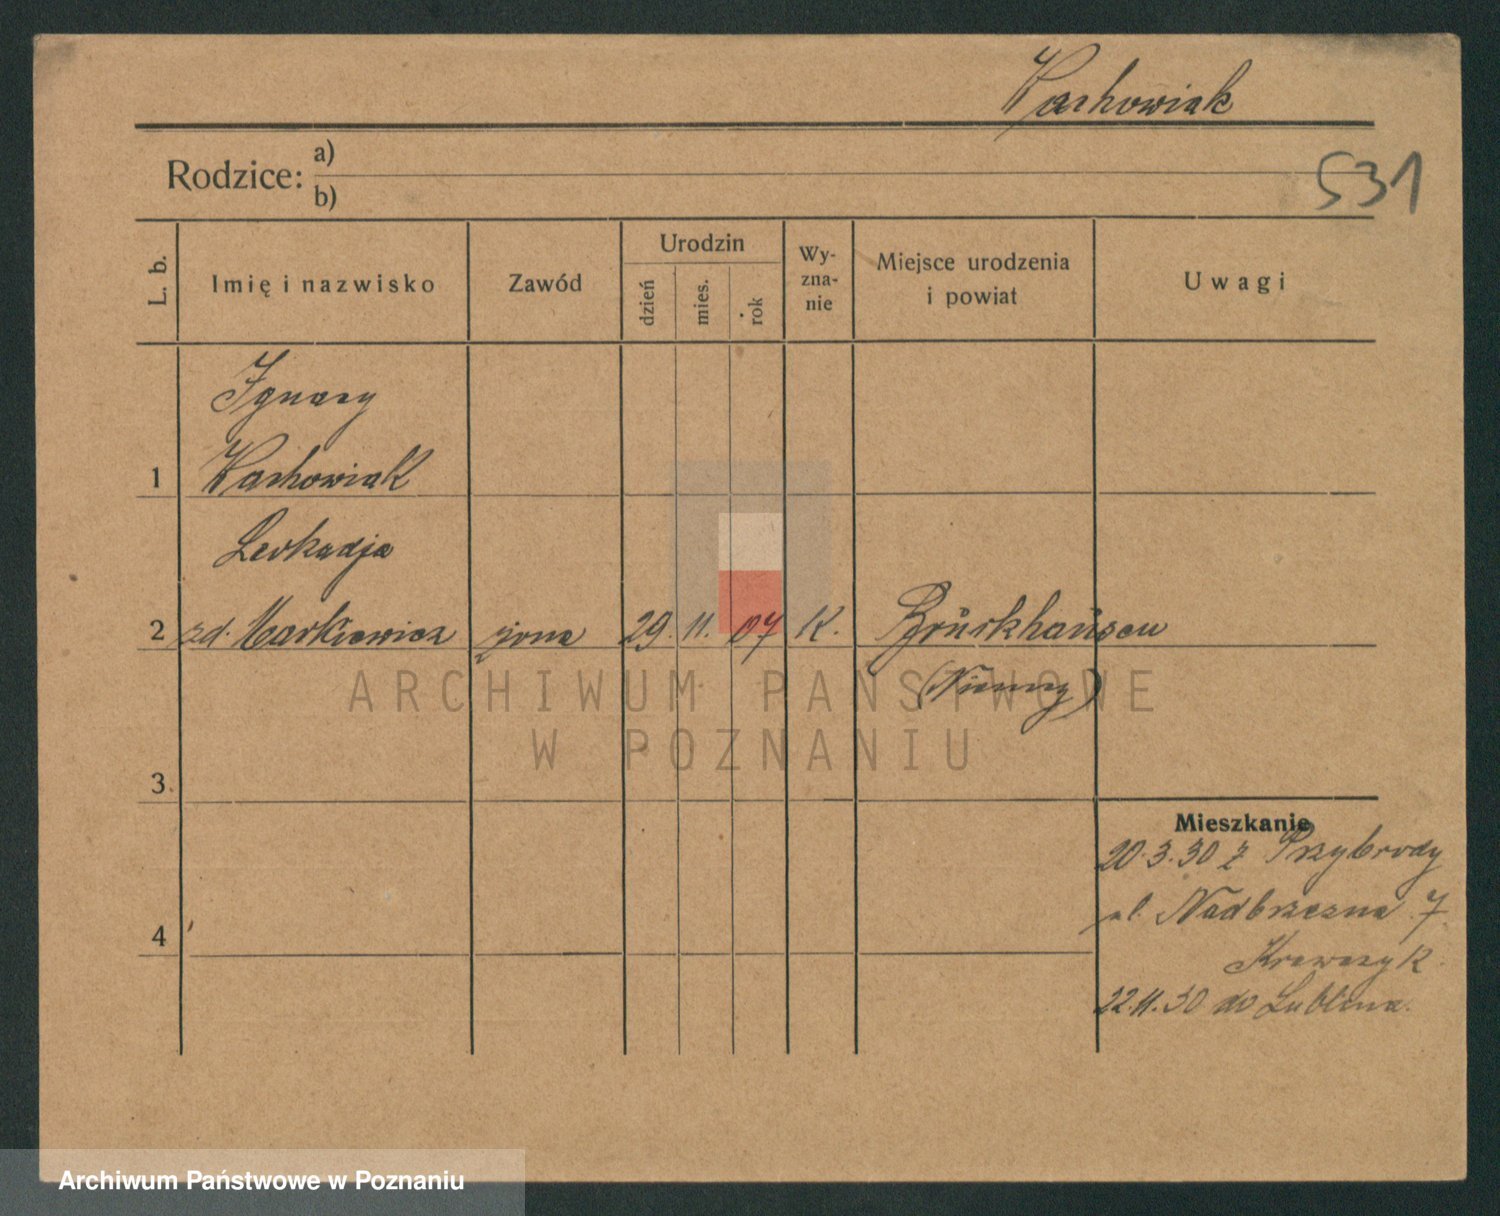 Wachowiak
531
Rodzice:
a)
b)
L. b.
Imię i nazwisko
Zawód
Urodzin
dzień
mies.
rok
Wy-
zna-
nie
Miejsce urodzenia
i powiat
Uwagi
Ignacy
1 Wachowiak
Leokadja
2 zd. Markiewicz żona 29. 11. 07 K. Brückhausen
(Niemcy)
3.
4
Mieszkanie
20.3.30 z Przybrody
ul. Nadbrzezna 7.
Krawczyk
22.11.30 do Lublina.
ARCHIWUM PAŃSTWOWE
W POZNANIU
Archiwum Państwowe w Poznaniu